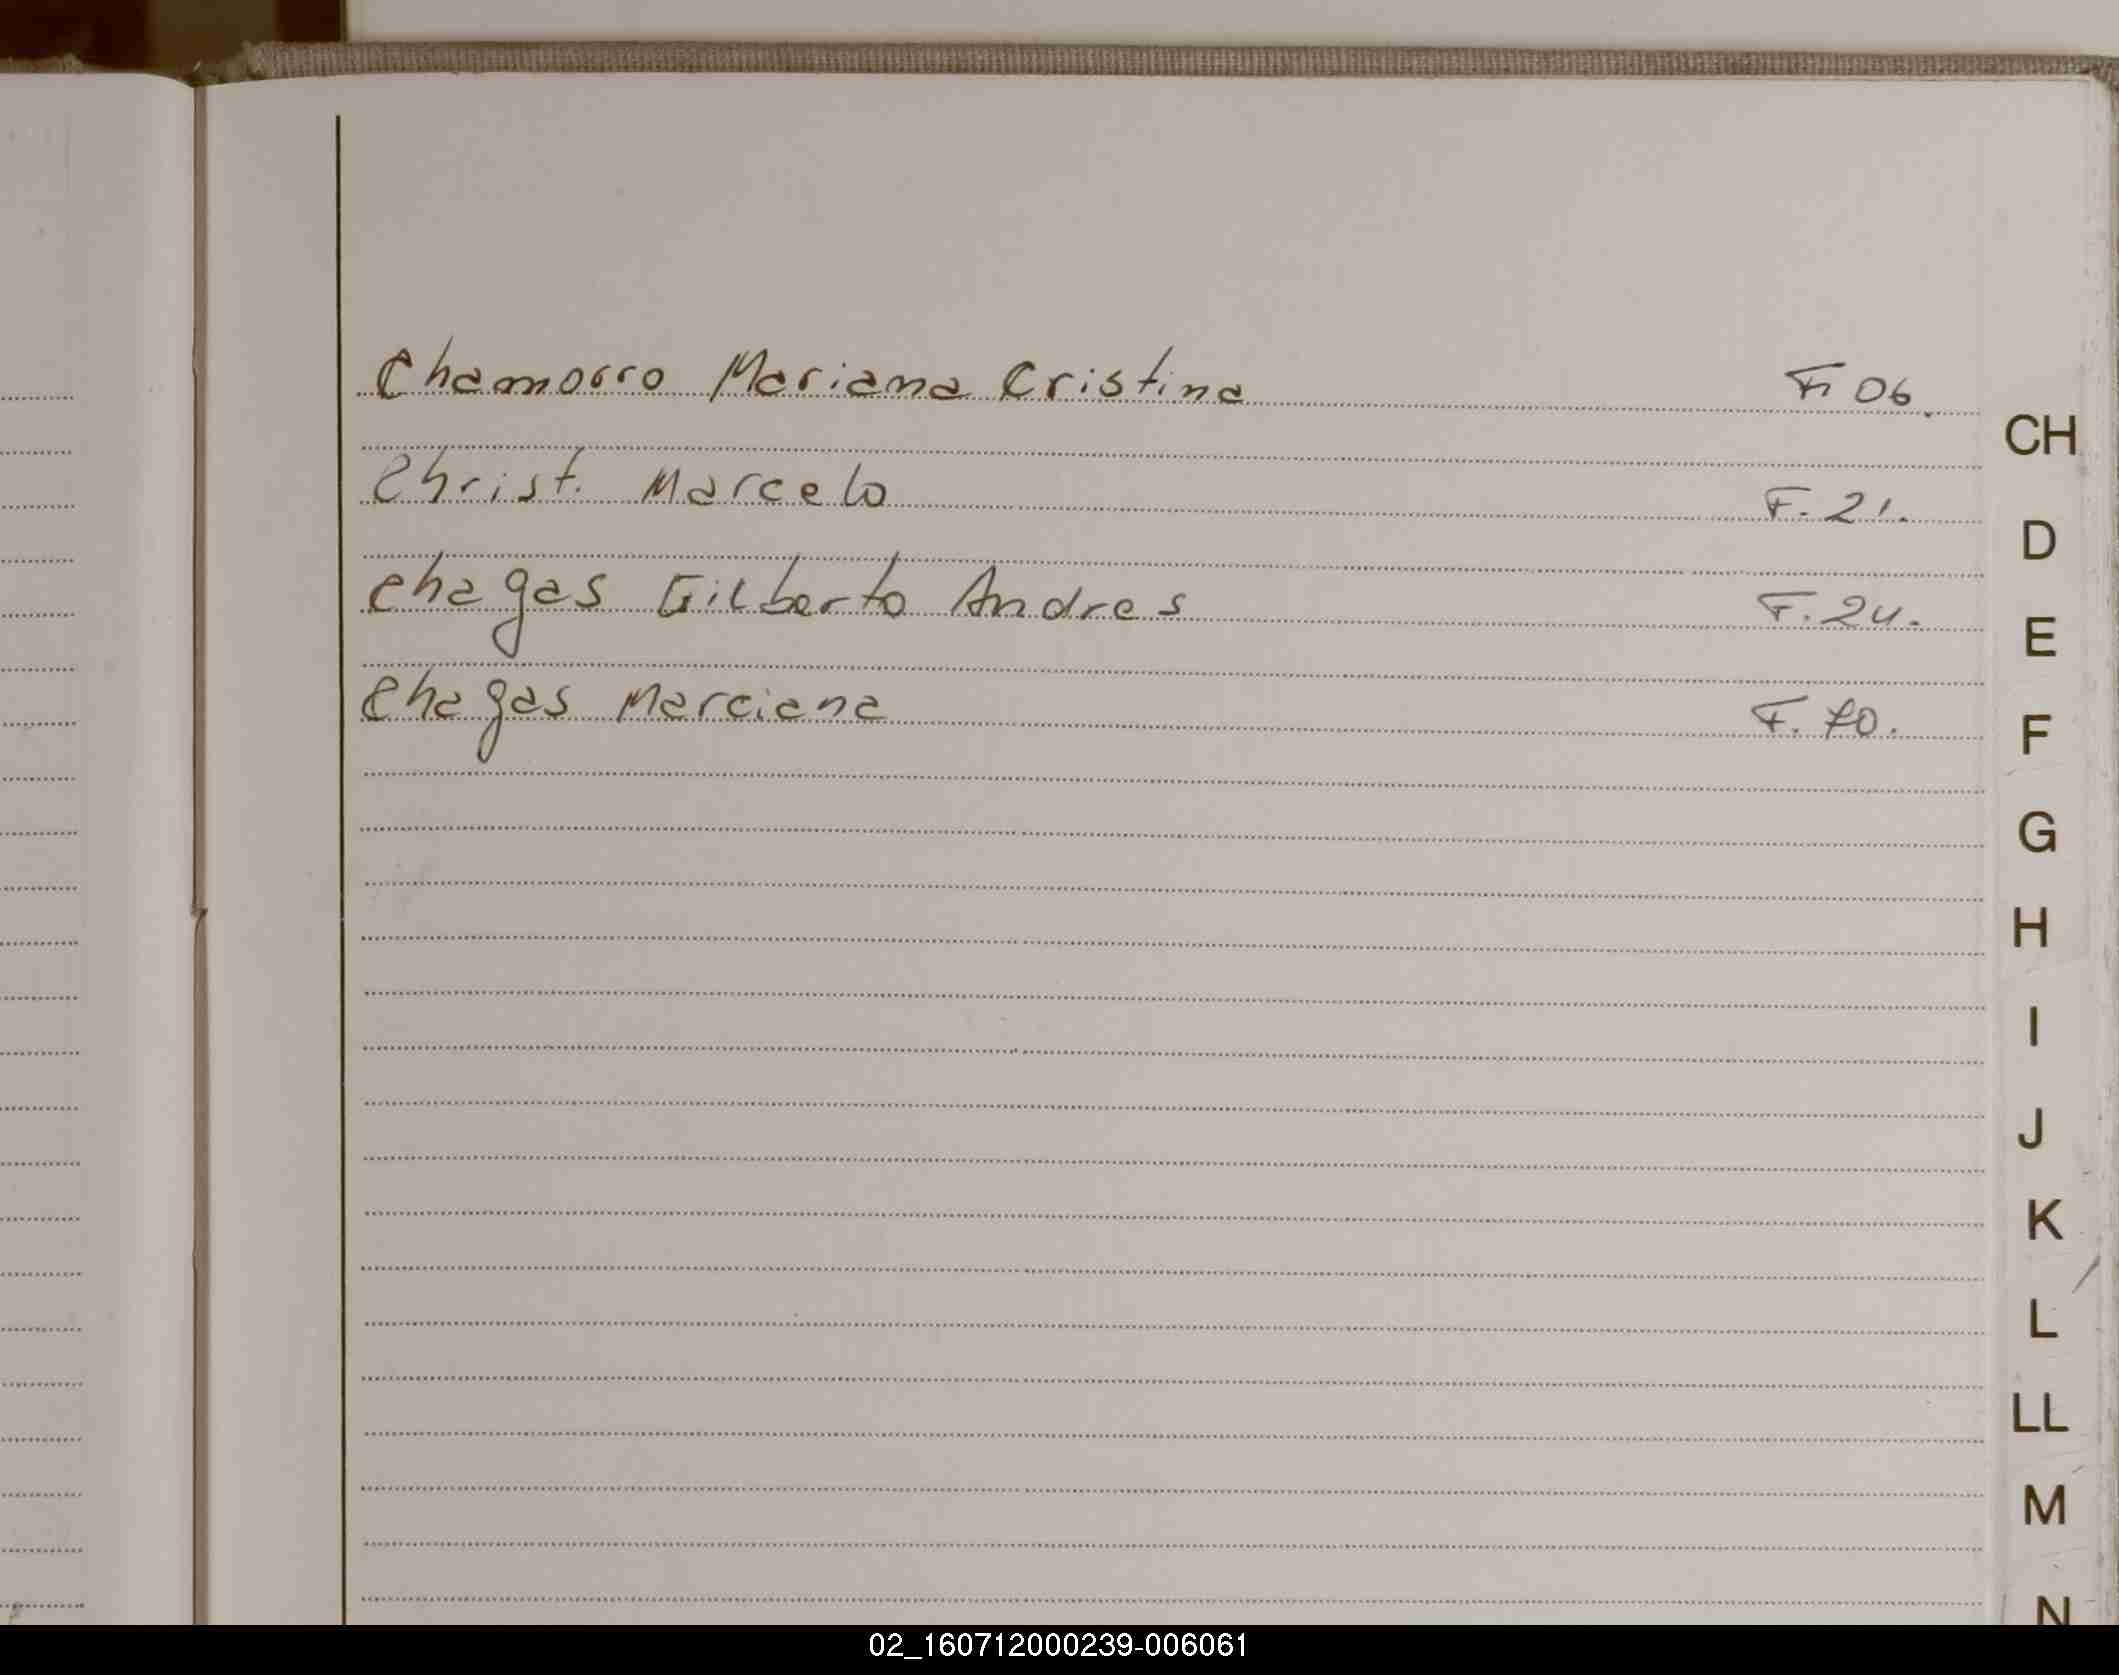 Chamorro Mariana Cristina F. 06.
Christ. Marcelo F. 21.
Chagas Gilberto Andres F. 24.
Chagas Marciana F. 70.
CH
D
E
F
G
H
I
J
K
L
LL
M
N
02_160712000239-006061